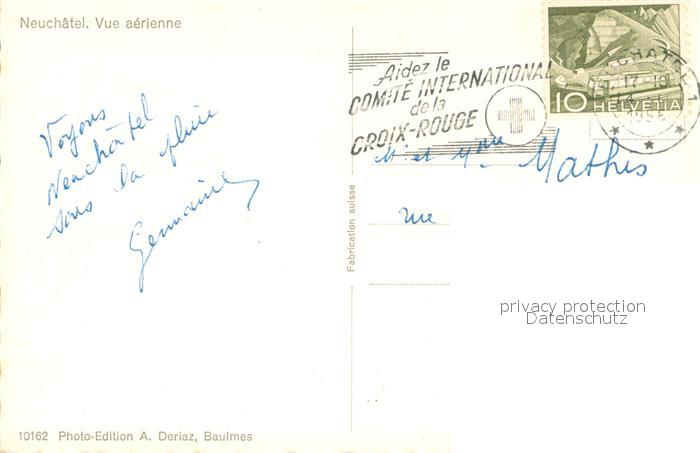 Neuchâtel. Vue aérienne
Voyons
Neuchâtel
sous la pluie
Germaine
10162 Photo-Edition A. Deriaz, Baulmes
Fabrication suisse
Aidez le
COMITÉ INTERNATIONAL
de la
CROIX-ROUGE
10 HELVETIA
M. et Mme Mathis
rue
privacy protection
Datenschutz